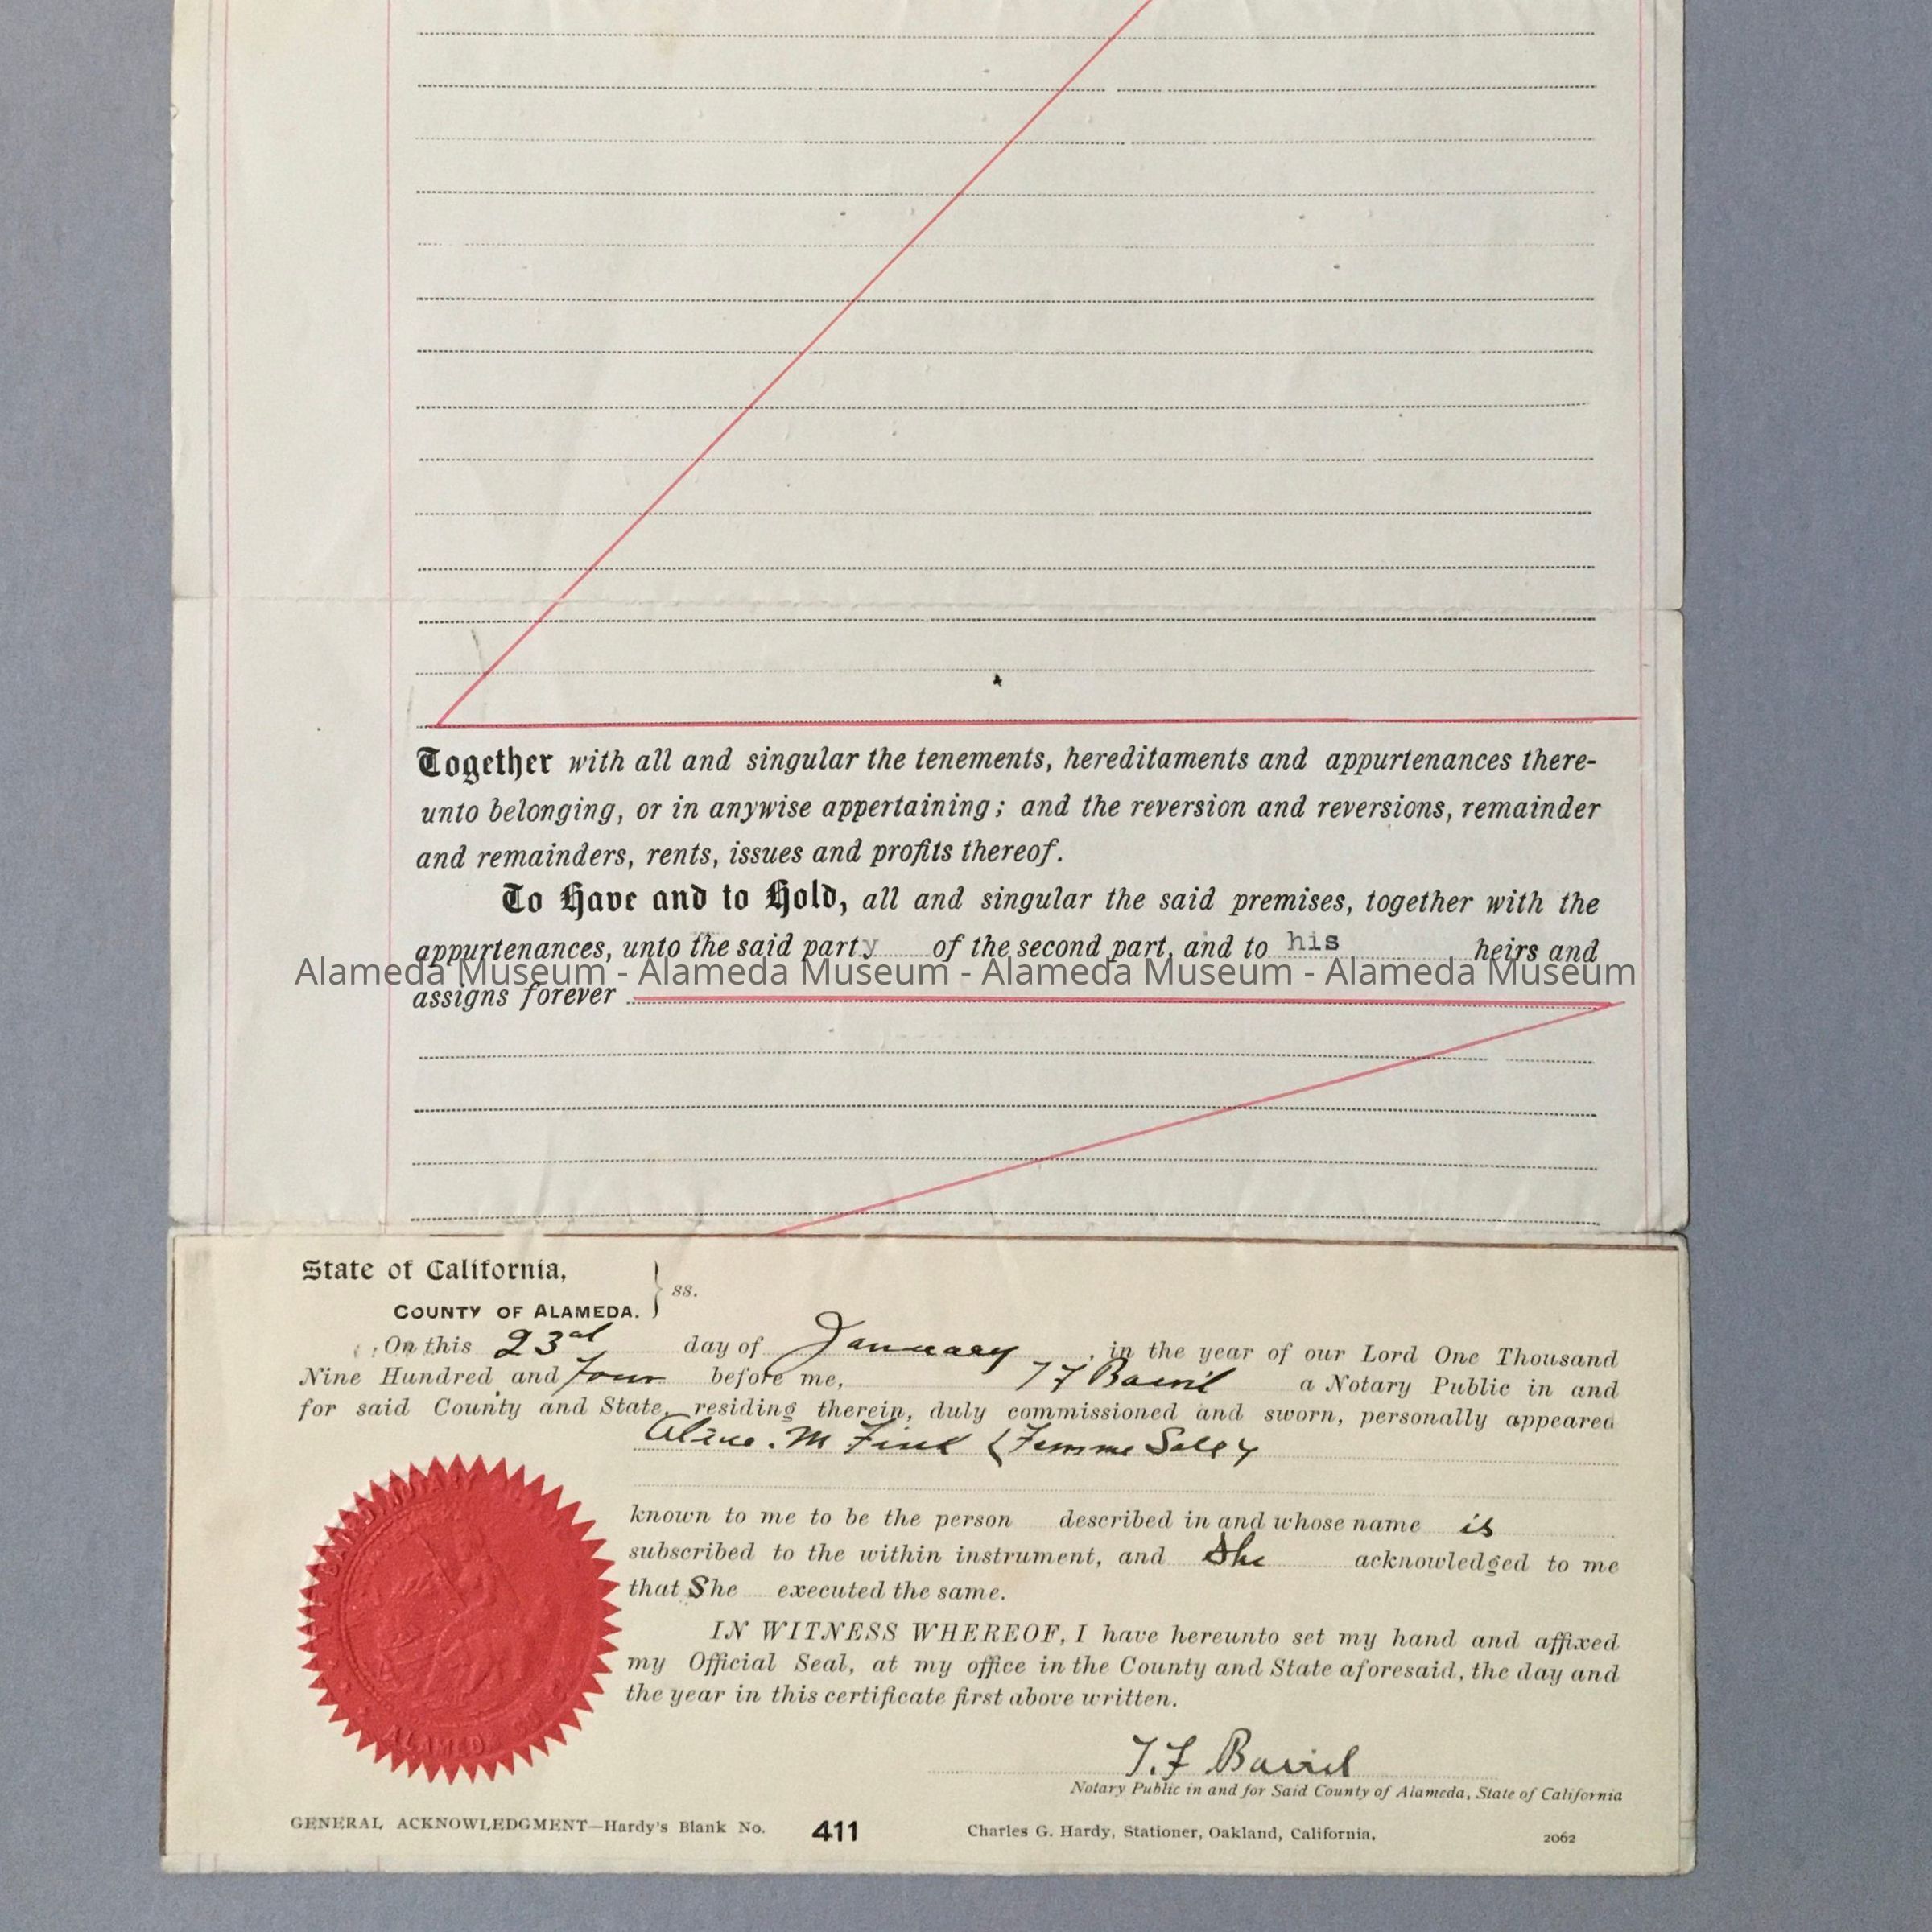 Together with all and singular the tenements, hereditaments and appurtenances there-
unto belonging, or in anywise appertaining; and the reversion and reversions, remainder
and remainders, rents, issues and profits thereof.
To Have and to Hold, all and singular the said premises, together with the
appurtenances, unto the said party of the second part, and to his heirs and
Alameda Museum - Alameda Museum - Alameda Museum - Alameda Museum
assigns forever
State of California,
COUNTY OF ALAMEDA. } ss.
On this 23rd day of January, in the year of our Lord One Thousand
Nine Hundred and four before me, T F Bairil a Notary Public in and
for said County and State, residing therein, duly commissioned and sworn, personally appeared
M Fink (Femme Sole)
known to me to be the person described in and whose name is
subscribed to the within instrument, and She acknowledged to me
that She executed the same.
IN WITNESS WHEREOF, I have hereunto set my hand and affixed
my Official Seal, at my office in the County and State aforesaid, the day and
the year in this certificate first above written.
T. F Bairil
Notary Public in and for Said County of Alameda, State of California
ALAMEDA CO
GENERAL ACKNOWLEDGMENT—Hardy's Blank No. 411 Charles G. Hardy, Stationer, Oakland, California, 2062